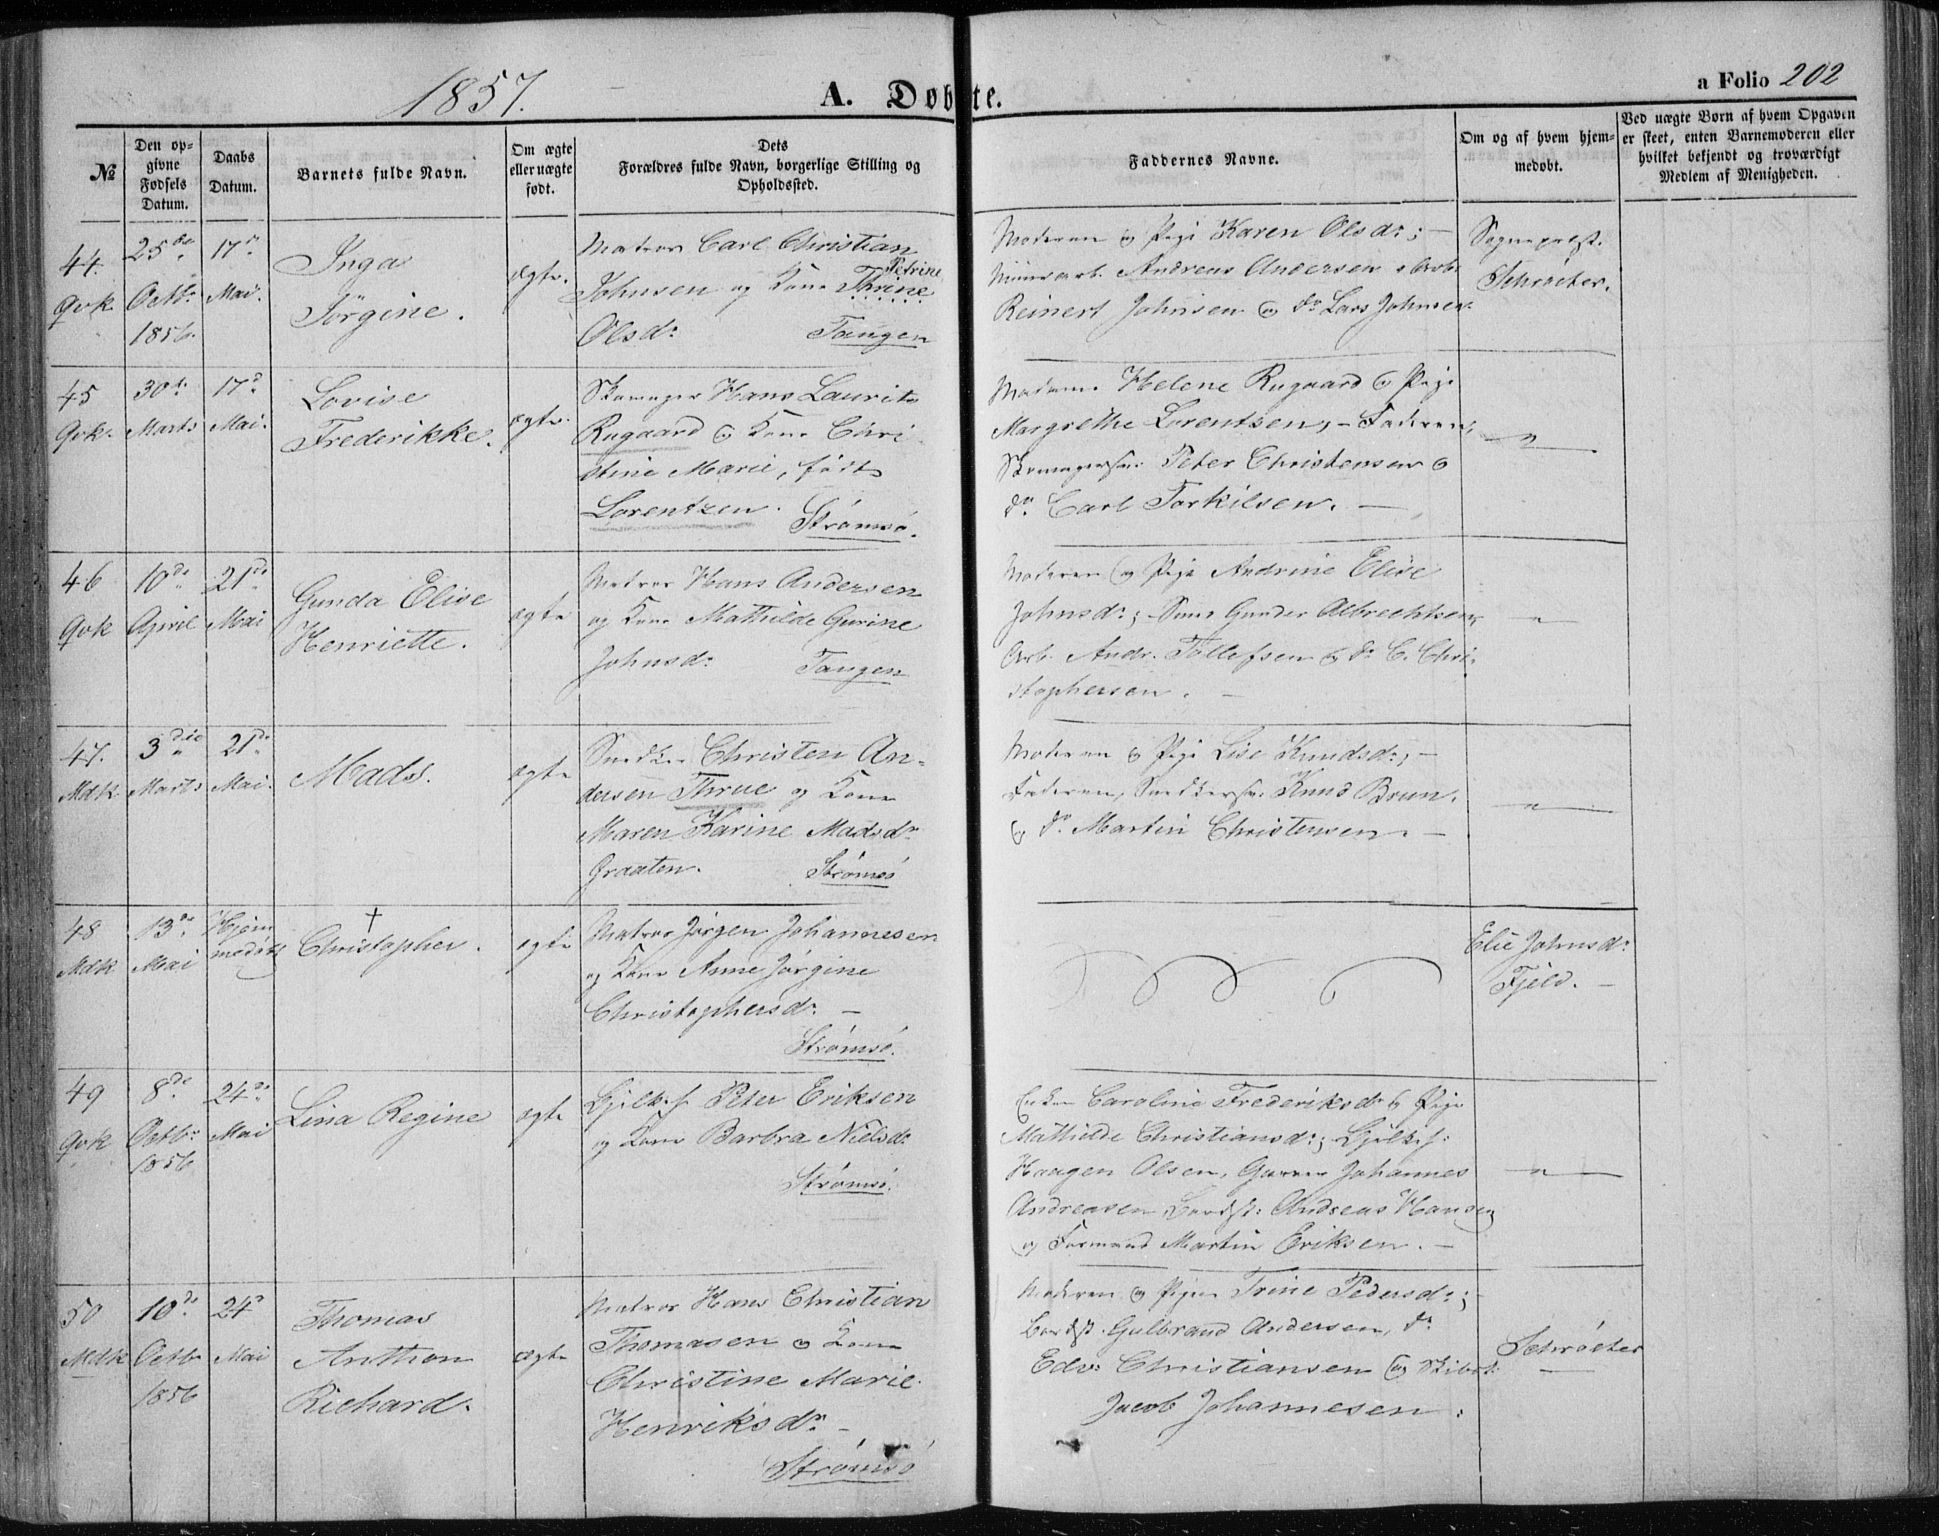 1857.
A. Døbte.
a Folio 202
№
Den opgivne Fødsels Datum.
Daabs Datum.
Barnets fulde Navn.
Om ægte eller uægte født.
Dets Forældres fulde Navn, borgerlige Stilling og Opholdssted.
Faddernes Navne.
Om og af hvem hjemmedøbt.
Ved uægte Børn af hvem Opgaven er skeet, enten Barnemoderen eller hvilket bekjendt og troværdigt Medlem af Menigheden.
44
Qvk
25de
Octbr
1856.
17de
Mai.
Inga
Jørgine.
ægte.
Matros Carl Christian
Petrine
Johnsen og Kone Thrine
Olsdr
Tangen
Moderen og Pige Karen Olsdr; —
Andreas Andersen, Arb.
Reinert Johnsen og do Lars Johnsen.
Sogneprest.
Schrøeter.
45
Qvk.
30de
Marts
17de
Mai.
Lovise
Frederikke.
ægte.
Skomager Hans Laurits
Rugaard og Kone Chri-
stine Marie, født
Lorentzen.
Strømsø.
Madame Helene Rugaard og Pige
Margrethe Lorentsen, – Faderen,
Skomagersv. Peter Christensen og
do Carl Torkilsen. —
— " —
46
Qvk
10de
April
21de
Mai
Gunda Elise
Henriette.
ægte
Matros Hans Andersen
og Kone Mathilde Gurine
Johnsdr
Tangen
Moderen og Pige Andrine Elise
Johnsdr; Gunder Albrechtsen,
Arb. Andr. Tollefsen og do C. Chri-
stophersen. —
— " —
47.
Mdk
3die
Marts
21de
Mai.
Mads.
ægte
Snedker Christen An-
dersen Thrue og Kone
Maren Karine Madsdr
Graaten.
Strømsø
Moderen og Pige Lise Knudsdr; —
Faderen, Snedkersv. Knud Brun,
og do Martin Christensen. —
— " —
48
Mdk
13de
Mai
Hjem
medøbt
†
Christopher.
ægte
Matros Jørgen Johannesen
og Kone Anne Jørgine
Christophersdr —
Strømsø.
Elie Johnsdr
Fjeld. —
49
Qvk
8de
Octbr
1856
24de
Mai
Lina Regine
ægte
Peter Eriksen
og Kone Barbra Nielsdr
Strømsø.
Caroline Frederiksdr og Pige
Mathilde Christiansdr;
Haagen Olsen, Johannes
Andreasen Bordst: Andreas Hansen
og Formand Martin Eriksen. —
— " —
50
Mdk
10de
Octbr
1856
24de
Mai
Thomas
Anthon
Richard.
ægte
Matros Hans Christian
Thomasen og Kone
Christine Marie
Henriksdr —
Strømsø
Moderen og Pigen Trine Pedersdr;
Bordst. Gulbrand Andersen, do
Edv. Christiansen og
Jacob Johannesen.
Schrøeter
—